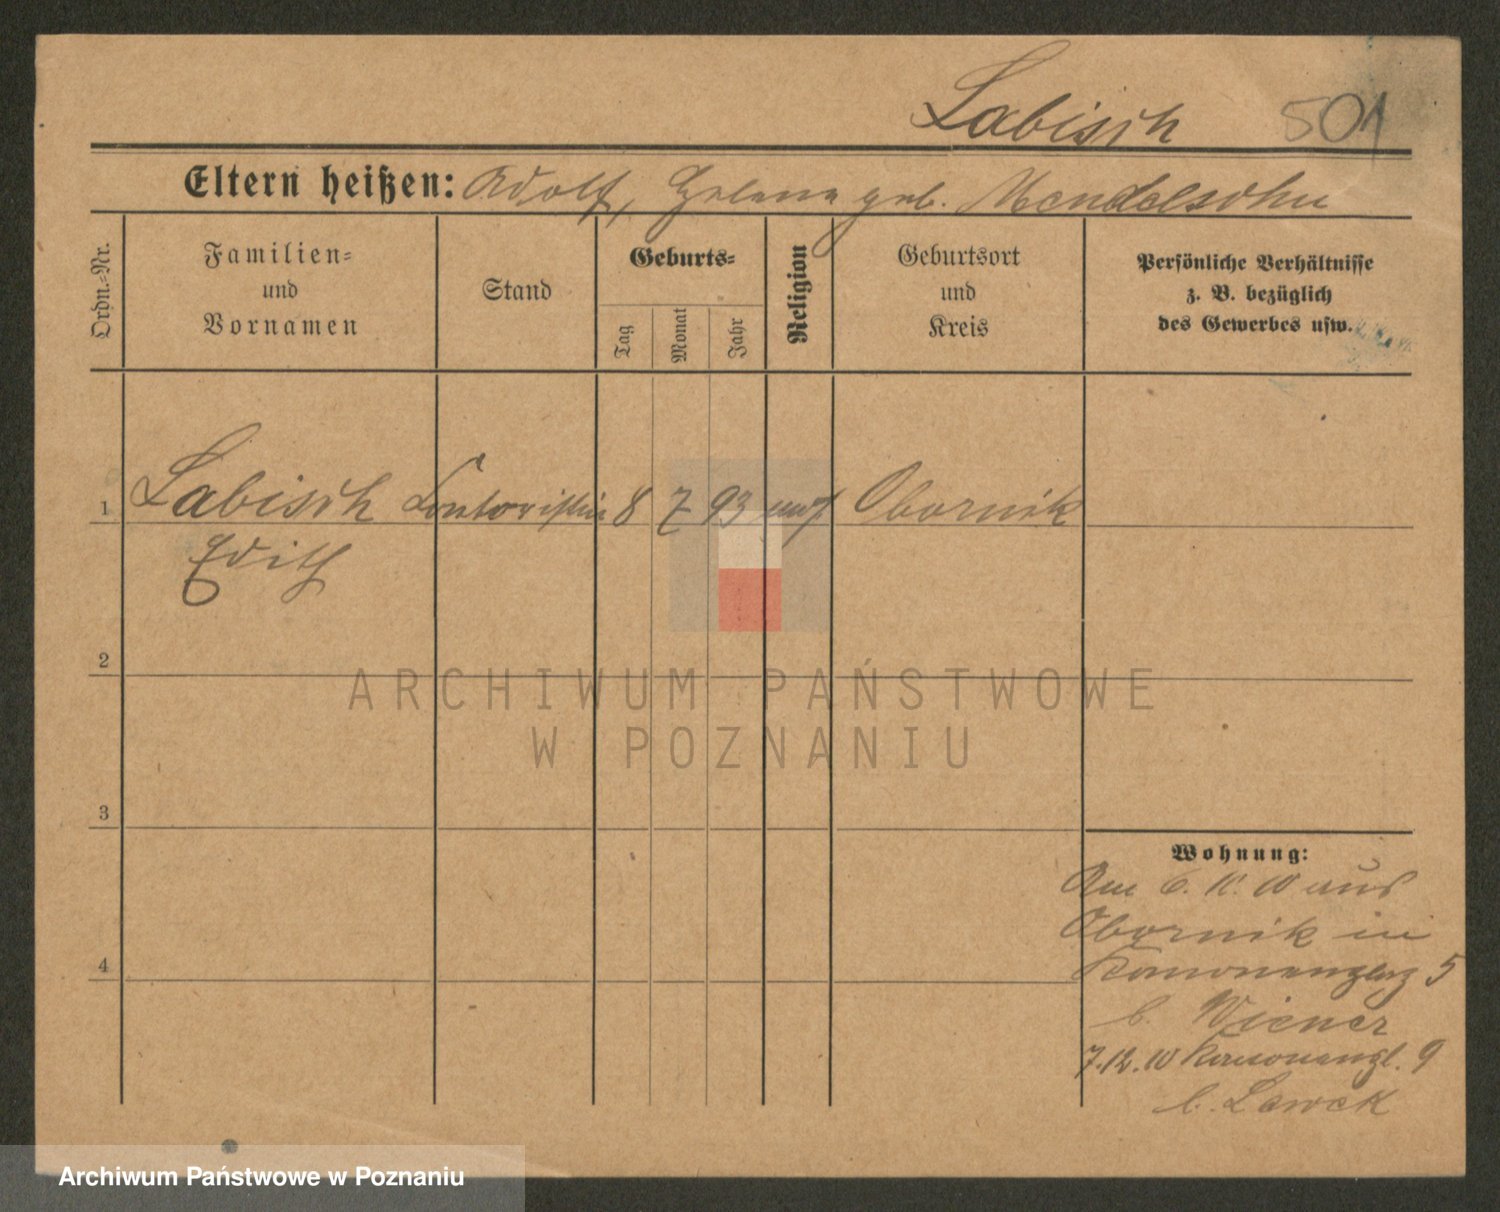 Labisch 501
Eltern heißen: Adolf, Helene geb. Mendelsohn
Ordn.-Nr.
Familien-
und
Vornamen
Stand
Geburts-
Tag
Monat
Jahr
Religion
Geburtsort
und
Kreis
Persönliche Verhältnisse
z. B. bezüglich
des Gewerbes usw.
1 Labisch Contoristin 8 7 93 mos. Obornik
Edith
2
3
4
Wohnung:
Am 6. 10 aus
Obornik in
5
b. Wiener
7.12.10 9
b. Lewek
ARCHIWUM PAŃSTWOWE
W POZNANIU
Archiwum Państwowe w Poznaniu